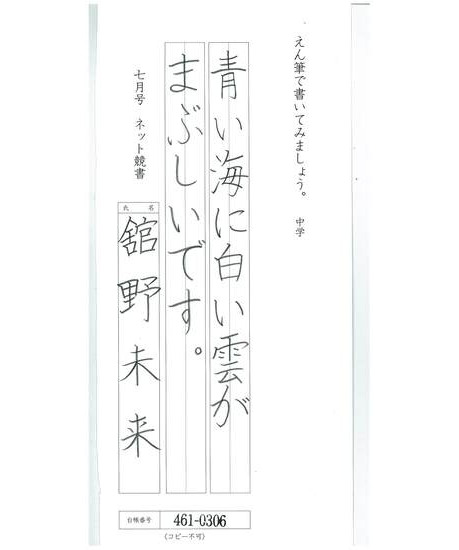 えん筆で書いてみましょう。 中学
青い海に白い雲が
まぶしいです。
七月号 ネット競書
氏名
舘野未来
台帳番号 461-0306
(コピー不可)